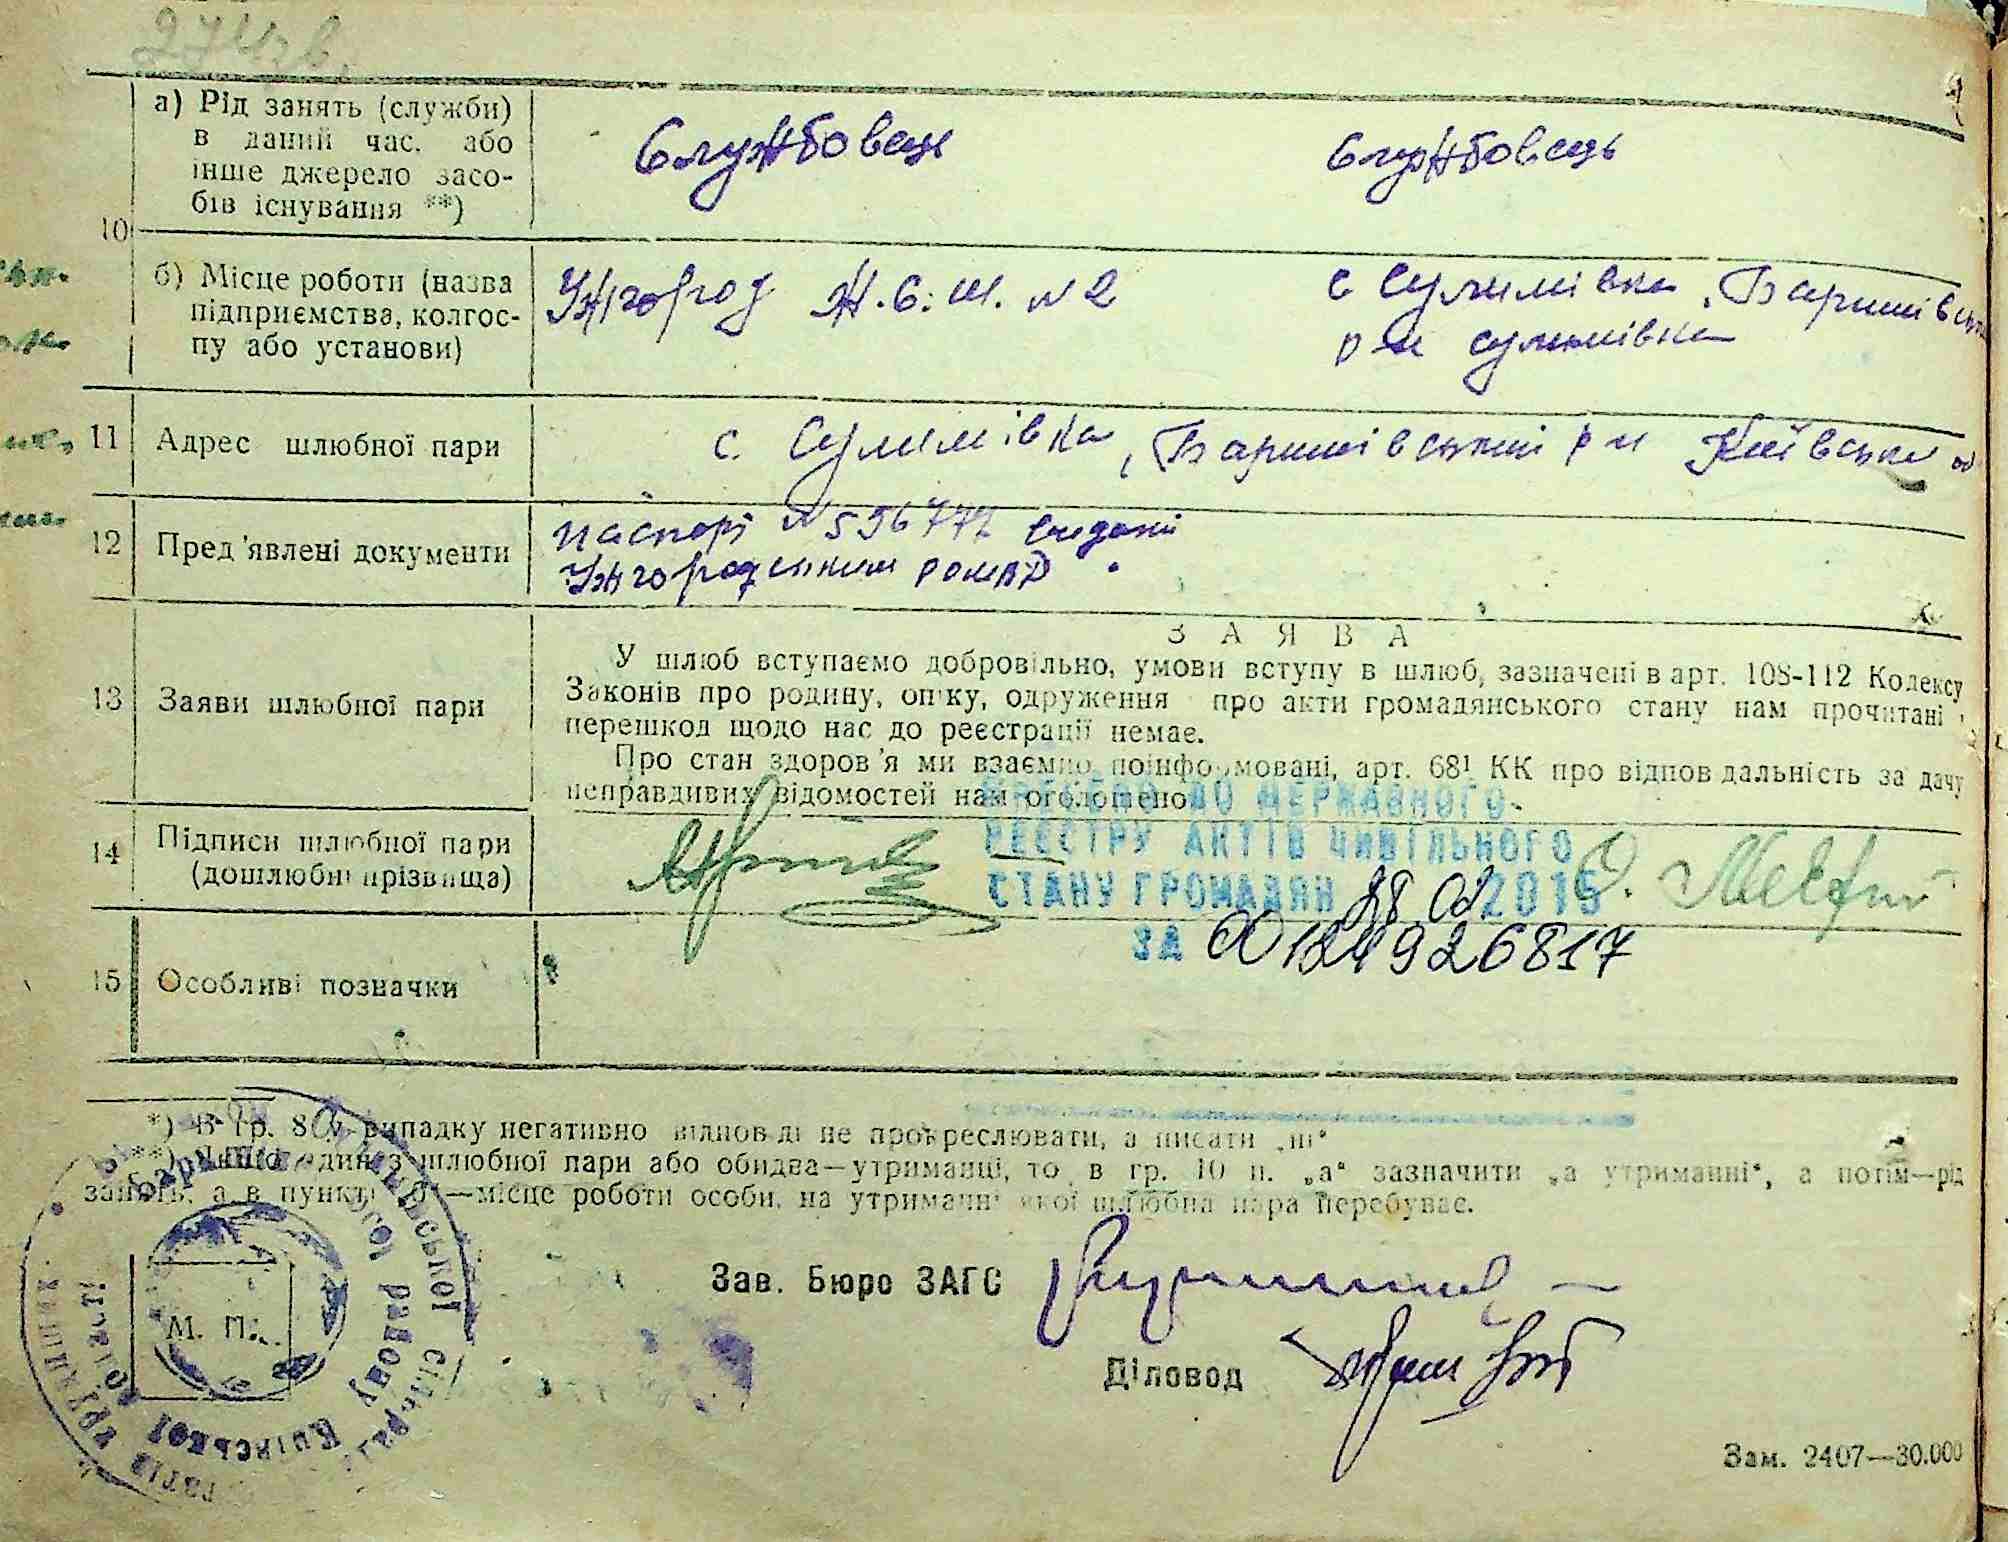 а) Рід занять (служби)
в даний час. або
інше джерело засо-
бів існування **)
Службовець
Службовець
10
б) Місце роботи (назва
підприємства, колгос-
пу або установи)
Ужгород Ж.С.Ш. №2
с Сулимівка, Баришівськ
р-н Сулимівка
11 Адрес шлюбної пари
с. Сулимівка, Баришівський р н Київська об
12 Пред'явлені документи
паспорт № 596777 виданий
Ужгородським РОМВД
13 Заяви шлюбної пари
ЗАЯВА
У шлюб вступаємо добровільно, умови вступу в шлюб, зазначені в арт. 108-112 Кодексу
Законів про родину, опіку, одруження про акти громадянського стану нам прочитані,
перешкод щодо нас до реєстрації немає.
Про стан здоров'я ми взаємно поінформовані, арт. 68¹ КК про відповідальність за дачу
неправдивих відомостей нам оголошено
14 Підписи шлюбної пари
(дошлюбні прізвища)
ВНЕСЕНО ДО ДЕРЖАВНОГО
РЕЄСТРУ АКТІВ ЦИВІЛЬНОГО
СТАНУ ГРОМАДЯН 2015
ЗА 00124926817
15 Особливі позначки
*) В гр. 8 у випадку негативно відповіді не прокреслювати, а писати „ні“
**) Якщо один з шлюбної пари або обидва—утриманці, то в гр. 10 п. „а“ зазначити „а утриманні“, а потім—рід
занять, а в пункті „б“—місце роботи особи, на утриманні якої шлюбна пара перебуває.
М. П.
Зав. Бюро ЗАГС
Діловод
Зам. 2407—30.000